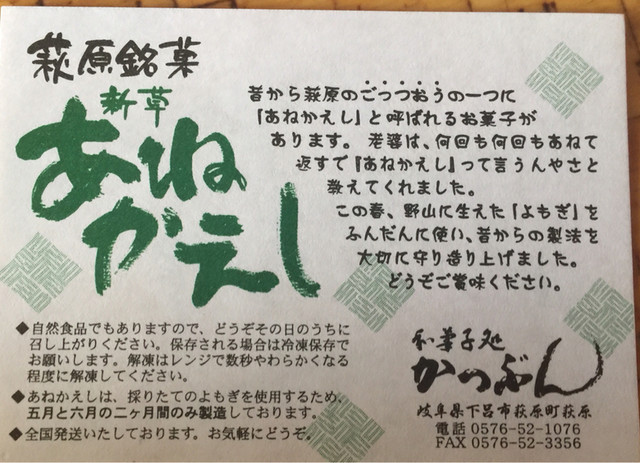 萩原銘菓
新草
あねかえし
昔から萩原のごっつおうの一つに
「あねかえし」と呼ばれるお菓子が
あります。老婆は、何回も何回もあねて
返すで『あねかえし』って言うんやさと
教えてくれました。
この春、野山に生えた「よもぎ」を
ふんだんに使い、昔からの製法を
大切に守り造り上げました。
どうぞご賞味ください。
◆自然食品でもありますので、どうぞその日のうちに
召し上がりください。保存される場合は冷凍保存で
お願いします。解凍はレンジで数秒やわらかくなる
程度に解凍してください。
◆あねかえしは、採りたてのよもぎを使用するため、
五月と六月の二ヶ月間のみ製造しております。
◆全国発送いたしております。お気軽にどうぞ。
和菓子処
かつぶん
岐阜県下呂市萩原町萩原
電話 0576-52-1076
FAX 0576-52-3356